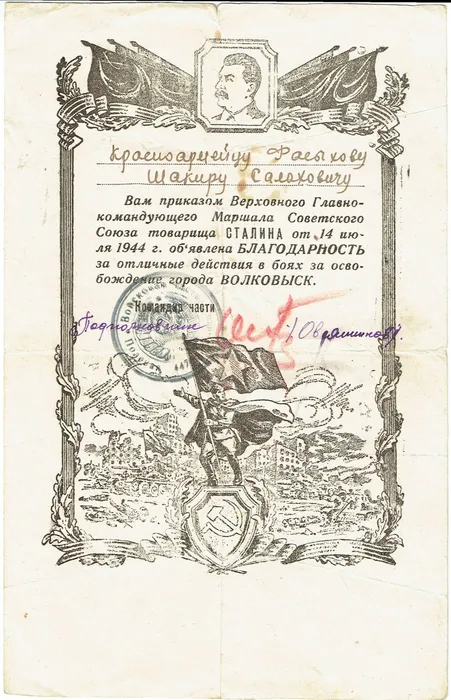 Красноармейцу Фасыхову
Шакиру Салаховичу
Вам приказом Верховного Главно-
командующего Маршала Советского
Союза товарища СТАЛИНА от 14 ию-
ля 1944 г. об'явлена БЛАГОДАРНОСТЬ
за отличные действия в боях за осво-
бождение города ВОЛКОВЫСК.
Командир части
Подполковник